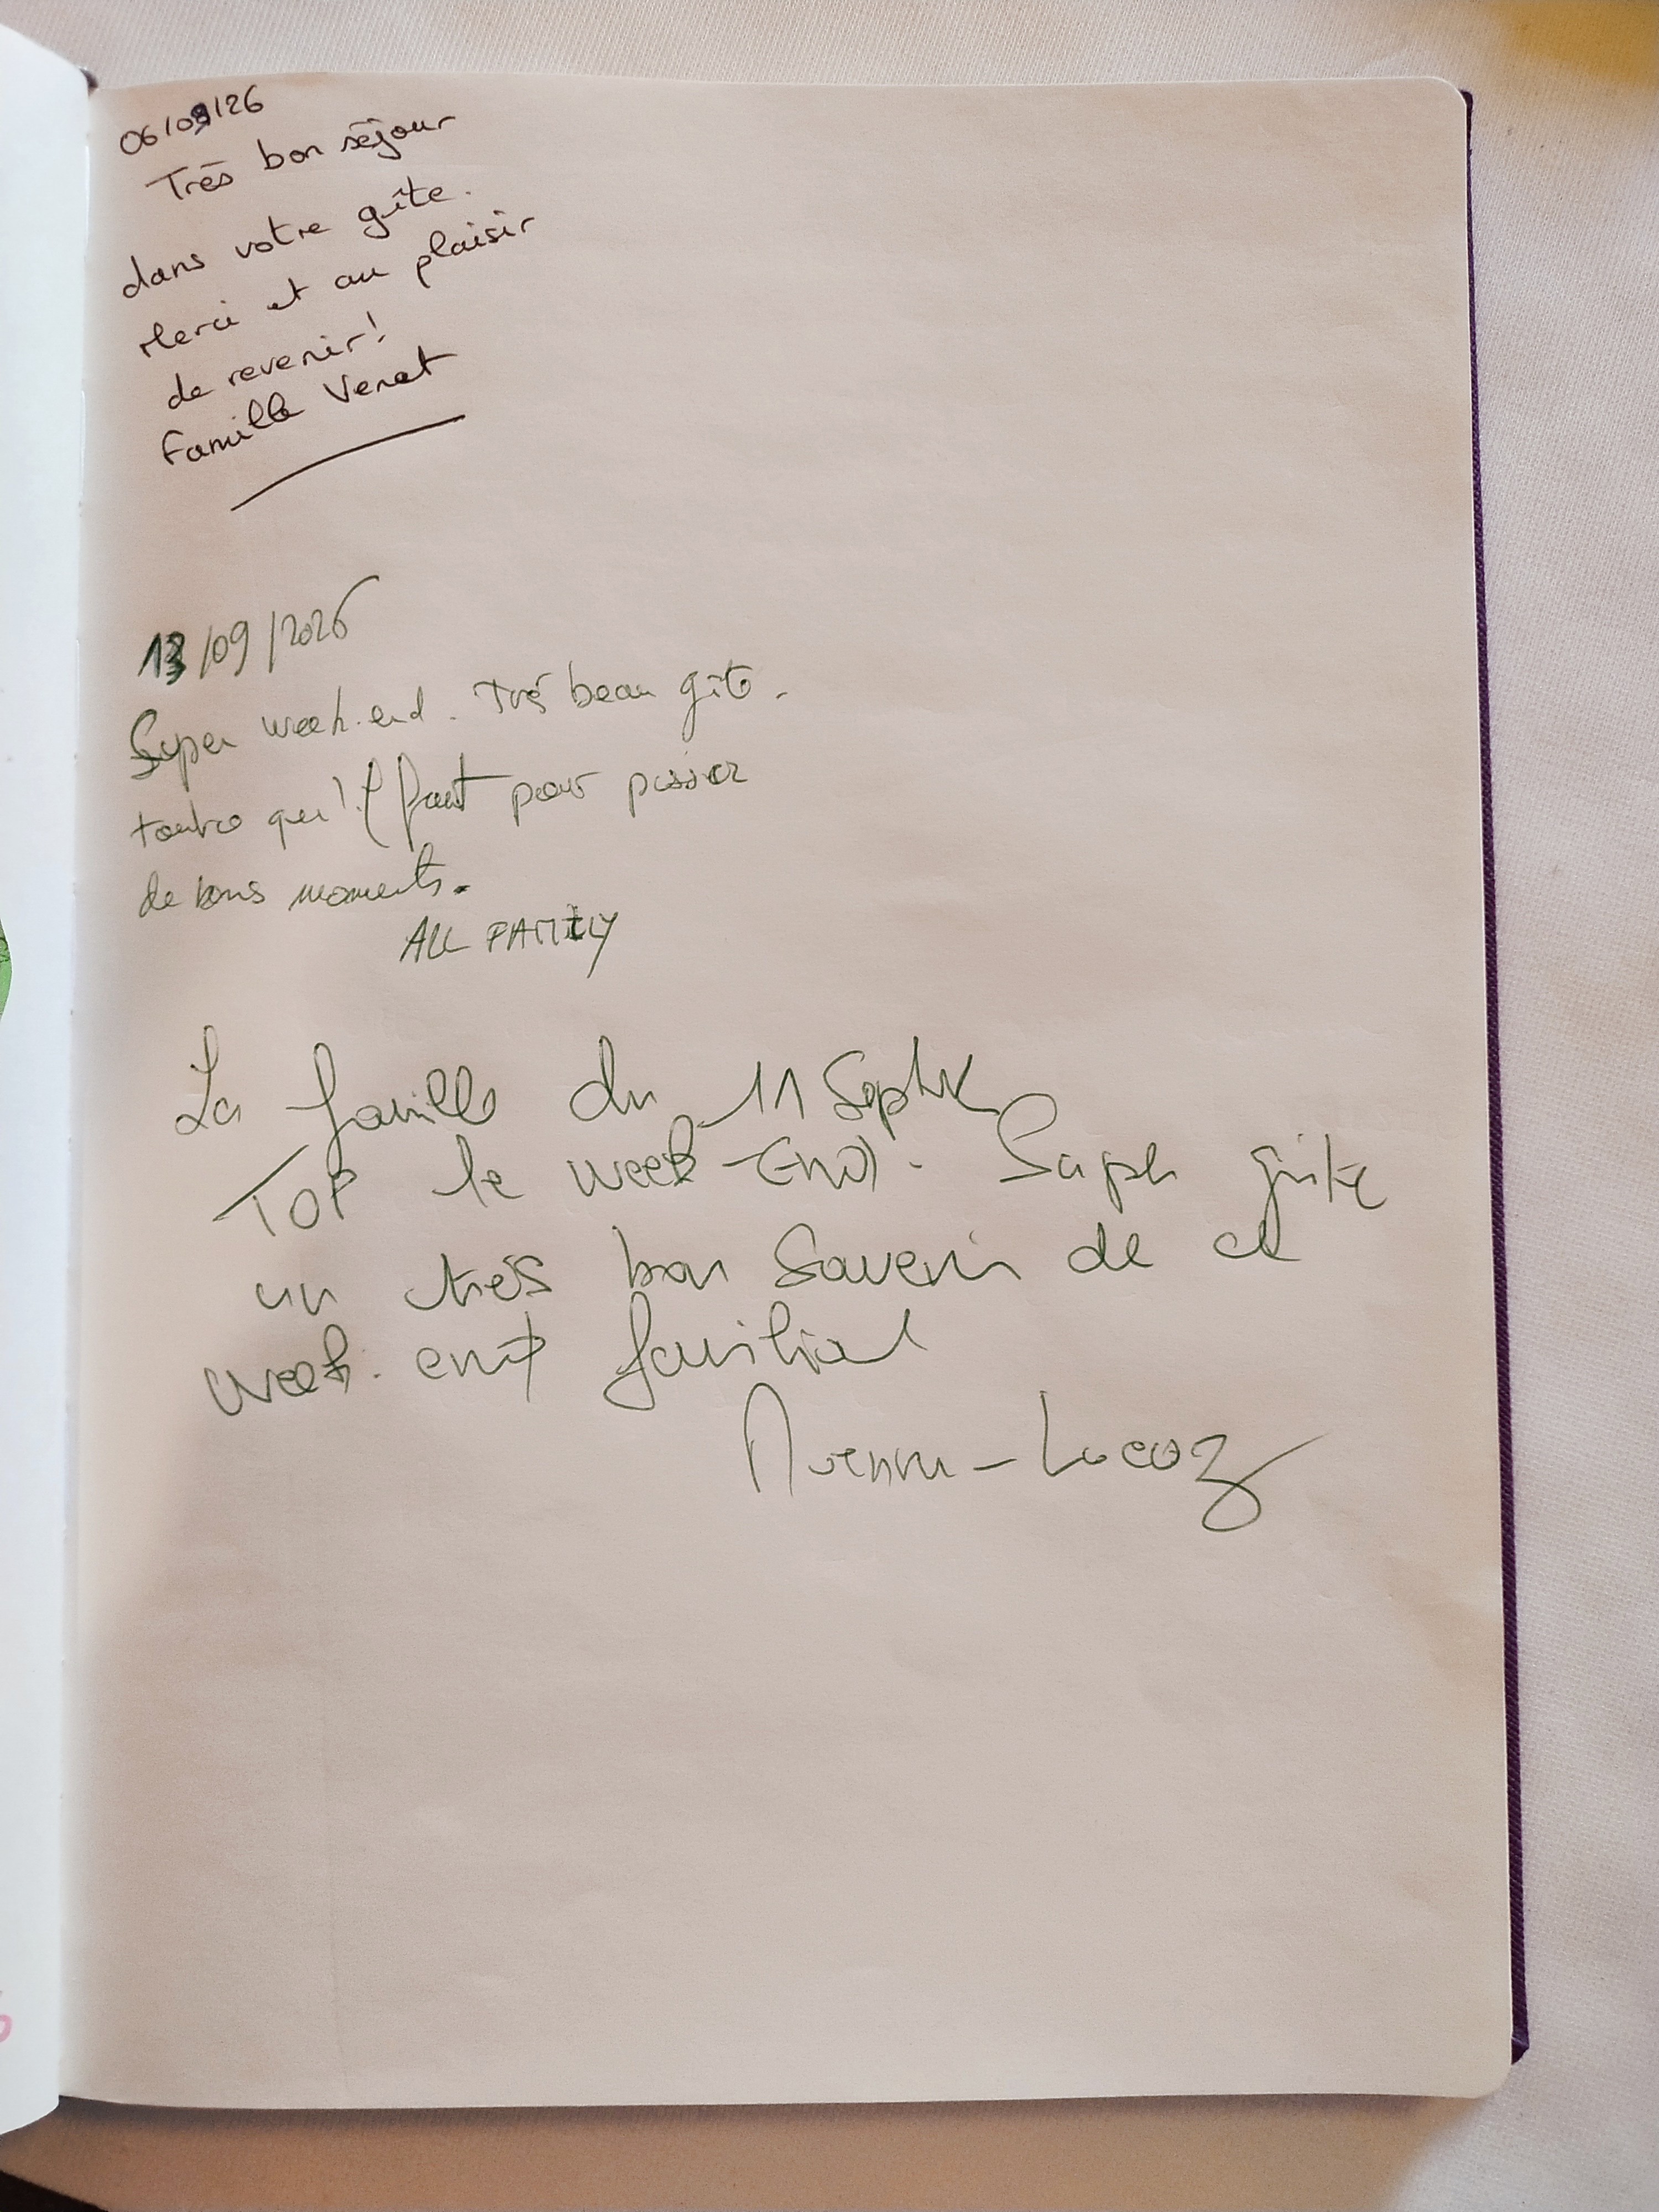 06/09/26
Très bon séjour
dans votre gîte.
Merci et au plaisir
de revenir!
Famille Venet
13/09/2026
Super week-end. Très beau gîte.
toutce qu'il faut pour passer
de bons moments.
ALL FAMILY
La famille du 11 Sept
TOP le week-End. Super gîte
un très bon Souvenir de ce
week-end familial